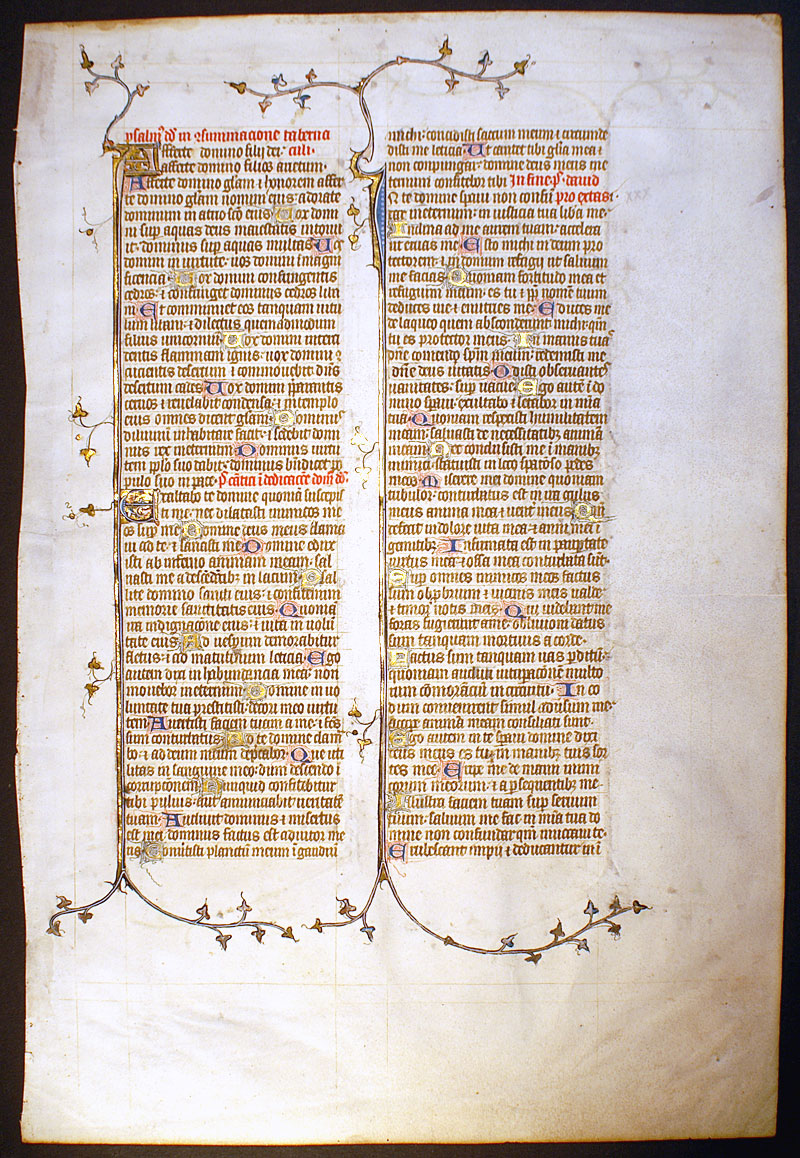 psalmꝰ dd̄ in ꝯsummacione taberna
Afferte domino filij dei: culi·
afferte domino filios arietum·
Afferte domino gl̄am ⁊ honorem affer
te domino gl̄am nomini eius: adorate
dominum in atrio sc̄o eius Uox domi
ni sup aquas deus maiestatis intonu
it: dominus sup aquas multas Uox
domini in uirtute: uox domini ī magni
ficencia Uox domini confringentis
cedros: ⁊ confringet dominus cedros liba
ni Et comminuet eos tanquam uitu
lum libani: ⁊ dilectus quemadmodum
filius unicornium Uox domini interci
dentis flammam ignis: uox domini ꝯ
cucientis desertum ⁊ commouebit dn̄s
desertum cades Uox domini p̄parantis
ceruos ⁊ reuelabit condensa: ⁊ in templo
eius omnes dicent gl̄am· Dominus
diluuium inhabitare facit: ⁊ sedebit domi
nus rex ineternum Dominus uirtu
tem pp̄lo suo dabit: dominus bn̄dicet po
pulo suo in pace·
Exaltabo te domine quoniā suscepis
ti me: nec delectasti inimicos me
os sup me Domine deus meus clama
ui ad te: ⁊ sanasti me Domine eduxi
sti ab inferno animam meam: sal
uasti me a descēdentibꝫ in lacum Psal
lite domino sancti eius: ⁊ confitemini
memorie sanctitatis eius Quoniā
ira indignacōne eius: ⁊ uita in uolun
tate eius Ad uesperum demorabitur
fletus: ⁊ ad matutinum leticia· Ego
autem dixi in habundancia mea: non
mouebor ineternum Domine in uo
luntate tua prestitisti: decori meo uirtu
tem Auertisti faciem tuam a me: ⁊ fc̄s
sum conturbatus Ad te domine clama
bo: ⁊ ad deum meum deprecabor· Que uti
litas in sanguine meo: dum descendo ī
corrupcionem Nunquid confitebitur
tibi puluis: aut annunciabit ueritatē
tuam· Audiuit dominus ⁊ misertus
est mei: dominus factus est adiutor me
us Conuertisti planctum meum ī gaudiū
michi: concidisti saccum meum ⁊ circumde
disti me leticia Ut cantet tibi glīa mea ⁊
non conpungar: domine deus meus in e
ternum confitebor tibi In fine ps̄ dauid
In te domine speraui non confū pro extasi
dar ineternum: in iusticia tua libera me·
Inclina ad me aurem tuam: accelera
ut eruas me Esto michi in deum pro
tectorem: ⁊ in domum refugij ut saluum
me facias Quoniam fortitudo mea et
refugium meum es tu: ⁊ pp̄ nomen tuum
deduces me· ⁊ enutries me· Educes me
de laqueo quem absconderunt michi: qm̄
tu es protector meus· In manus tuas
dn̄e comendo sp̄m meum: redemisti me
dn̄e deus ueritatis Odisti obseruantes
uanitates: sup uacue Ego autē ī do
mino speraui: exultabo ⁊ letabor in mīa
tua Quoniam respexisti humilitatem
meam: saluasti de necessitatibꝫ animā
meam Nec conclusisti me ī manibꝫ
inimici: statuisti in loco spatioso pedes
meos Miserere mei domine quoniam
tribulor: conturbatus est in ira oculus
meus anima mea ⁊ uenter meus Quoniā
defecit in dolore uita mea: ⁊ anni mei ī
gemitibꝫ Infirmata est in paupertate
uirtus mea: ⁊ ossa mea conturbata sunt·
Sup omnes inimicos meos factus
sum obprobrium ⁊ uicinis meis ualde:
⁊ timor notis meis Qui uidebant me
foras fugierunt a me: obliuioni datus
sum tanquam mortuus a corde·
Factus sum tanquam uas perditū:
quoniam audiui uituperacōnē multo
rum cōmorāciū in circuitu· In eo
dum conuenirent simul aduersum me:
accipere animā meam consiliati sunt·
Ego autem in te speraui domine dixi
deus meus es tu: in manibꝫ tuis sor
tes mee Eripe me de manu inimi
corum meorum: ⁊ a persequentibꝫ me·
Illustra faciem tuam sup seruum
tuum: saluum me fac in mīa tua do
mine non confundar qm̄ inuocaui te·
Erubescant impij ⁊ deducantur in ī